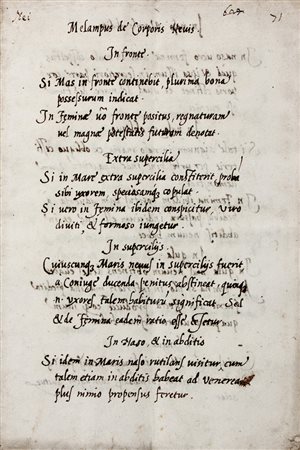 71
Melampus de Corporis Nevis
In fronte.
Si Mas in fronte continebit, plurima bona
possessurum indicat.
In fęmina uo fronte positus, regnaturam
vel magnæ potestatis futuram denotat.
Extra supercilia
Si in Mare extra supercilia constiterit, proba
sibi uxorem, speciosamq; copulat.
Si vero in fęmina ibidem conspicitur, Viro
diviti & formoso iungetur.
In supercilijs
Cuiuscunq; Maris nevus in supercilijs fuerit
a Coniuge ducenda penitus abstineat,
uxores talem habituru significat. Sed
& de fęmina eadem ratio esse
In Naso, & in abditis
Si idem in Maris naso rutilans visitur, cum
talem etiam in abditis habeat ad venerea
plus nimio propensus feretur.